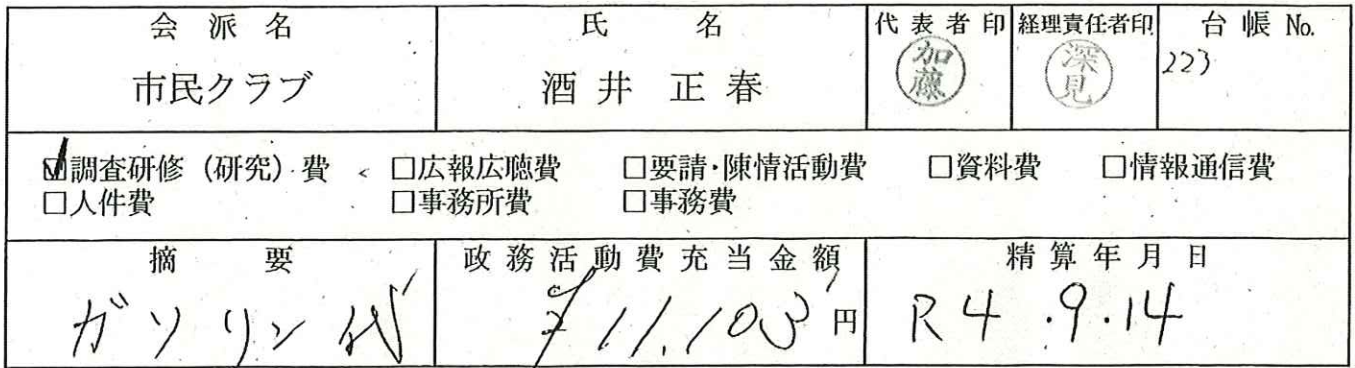 会派名 氏名 代表者印 経理責任者印 台帳No.
市民クラブ 酒井正春 加藤 深見 223
☑調査研修（研究）費 □広報広聴費 □要請・陳情活動費 □資料費 □情報通信費
□人件費 □事務所費 □事務費
摘要 政務活動費充当金額 精算年月日
ガソリン代 11,103円 R4.9.14